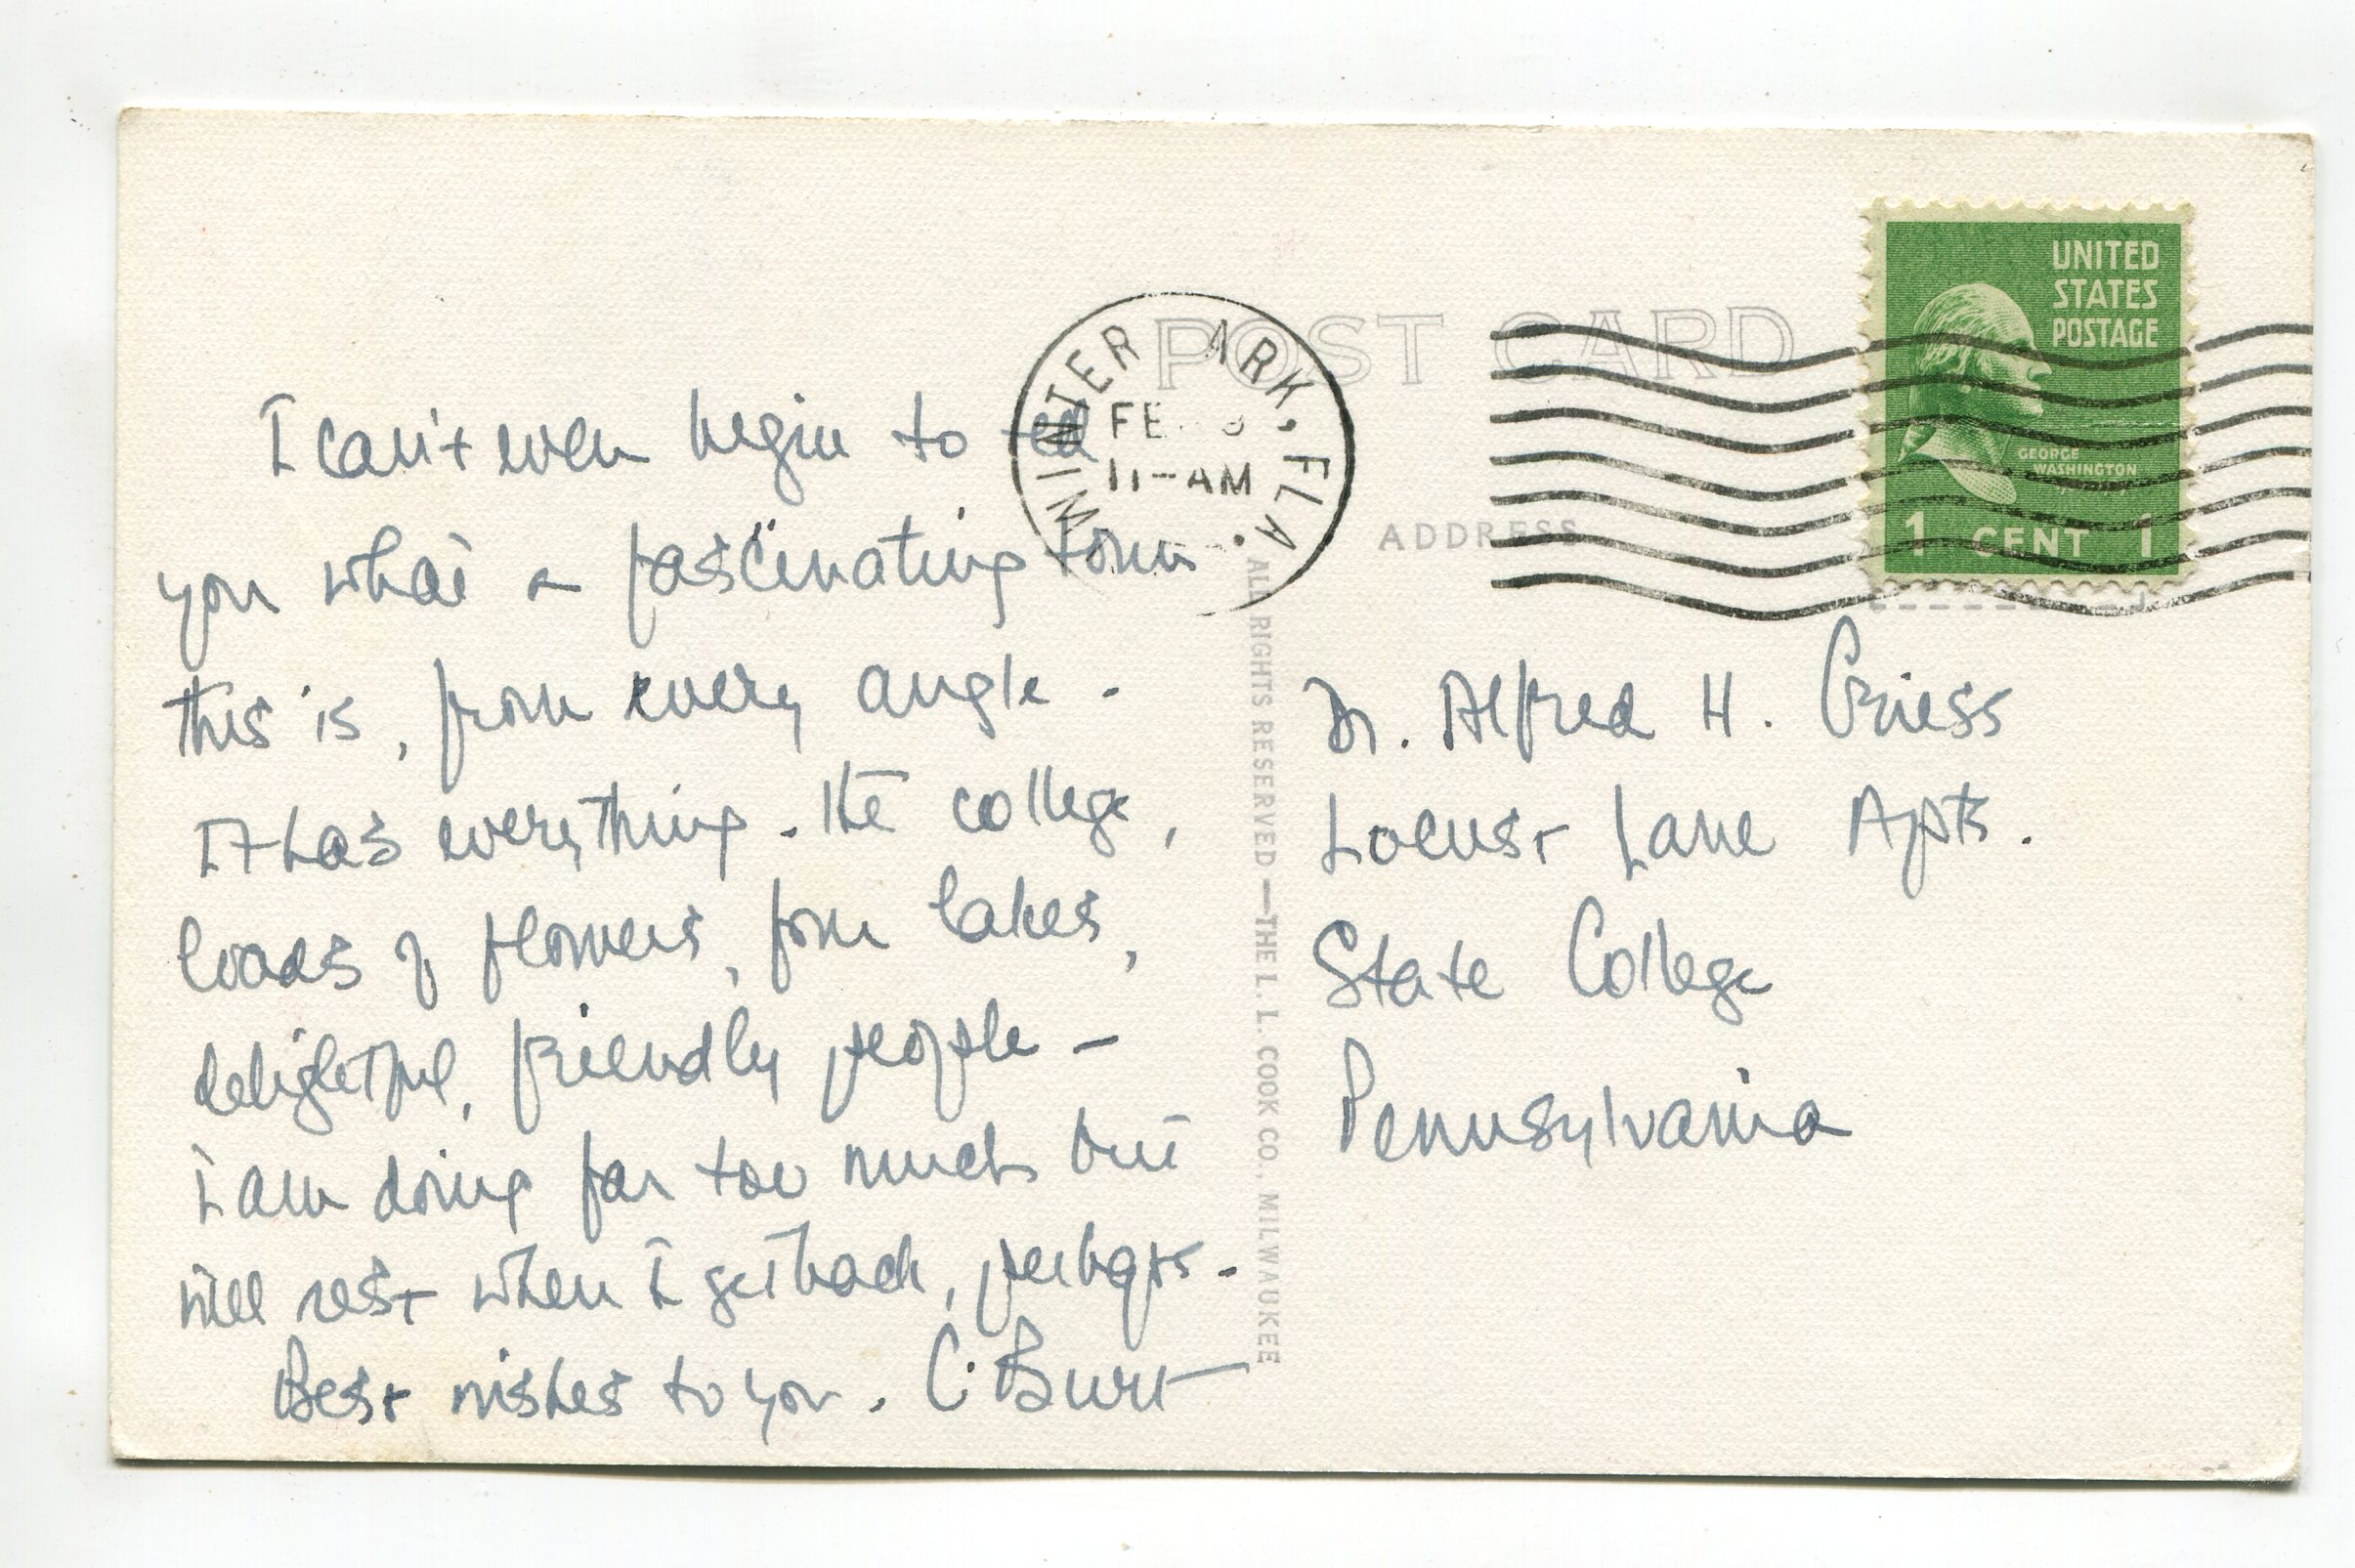 I can't even begin to tell
you what a fascinating town
this is, from every angle -
It has everything. The college,
loads of flowers, four lakes,
delightful, friendly people -
I am doing far too much but
will rest when I get back, perhaps.
Best wishes to you. C. Burt
POST CARD
WINTER ARK, FLA.
11-AM
ADDRESS
UNITED
STATES
POSTAGE
GEORGE
WASHINGTON
1 CENT 1
Dr. Alfred H. Griess
Locust Lane Apts.
State College
Pennsylvania
ALL RIGHTS RESERVED—THE L. L. COOK CO., MILWAUKEE